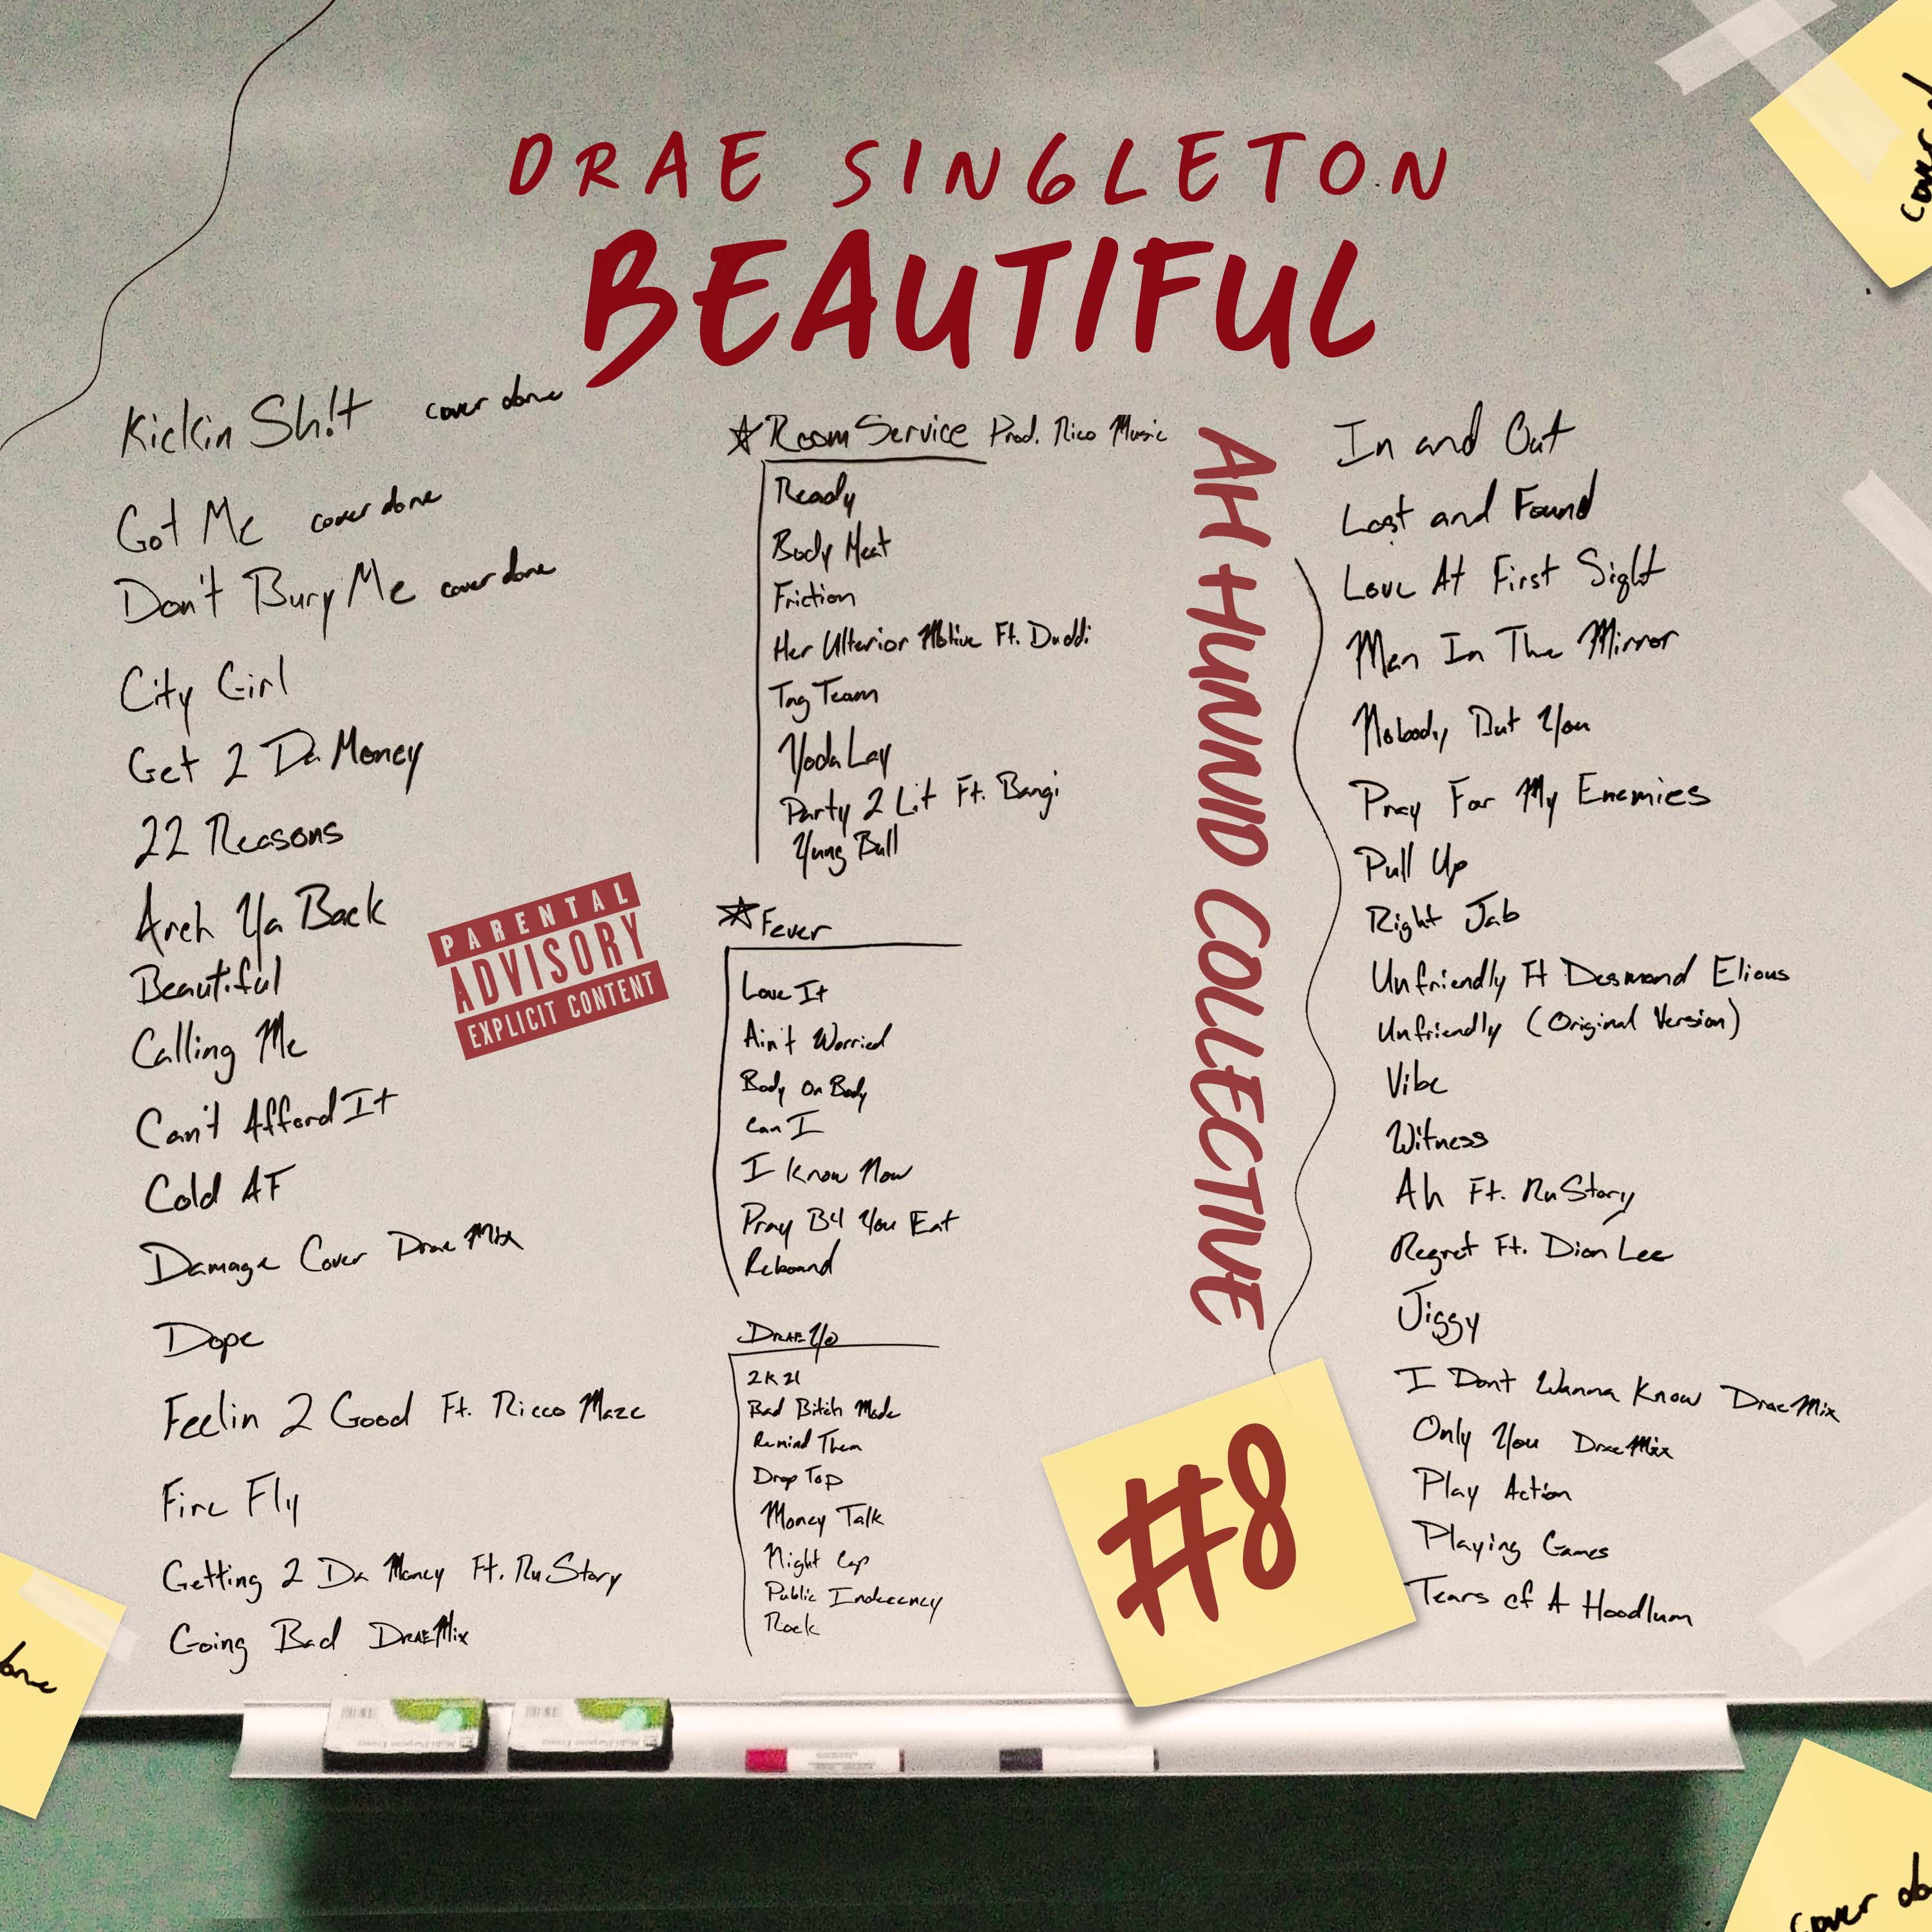 DRAE SINGLETON
BEAUTIFUL
Kickin Sh!t cover done
Got Me cover done
Don't Bury Me cover done
City Girl
Get 2 Da Money
22 Reasons
Arch Ya Back
Beautiful
Calling Me
Can't Afford It
Cold AF
Damage Cover DraeMix
Dope
Feelin 2 Good Ft. Ricco Maze
Fire Fly
Getting 2 Da Money Ft. RuStory
Going Bad DRAEMix
PARENTAL
ADVISORY
EXPLICIT CONTENT
Room Service Prod. Rico Music
Ready
Body Heat
Friction
Her Ulterior Motive Ft. Daddi
Tag Team
Yoda Lay
Party 2 Lit Ft. Bangi
Yung Ball
Fever
Love It
Ain't Worried
Body On Body
Can I
I Know Now
Pray B4 You Eat
Rebound
DRAE Yo
2K21
Bad Bitch Mode
Remind Them
Drop Top
Money Talk
Night Cap
Public Indecency
Rock
AH HUNNID COLLECTIVE
In and Out
Lost and Found
Love At First Sight
Man In The Mirror
Nobody But You
Pray For My Enemies
Pull Up
Right Jab
Unfriendly Ft Desmond Elious
Unfriendly (Original Version)
Vibe
Witness
Ah Ft. RuStory
Regret Ft. Dion Lee
Jiggy
I Dont Wanna Know DraeMix
Only You DraeMix
Play Action
Playing Games
Tears of A Hoodlum
#8
cover d
done
cover do